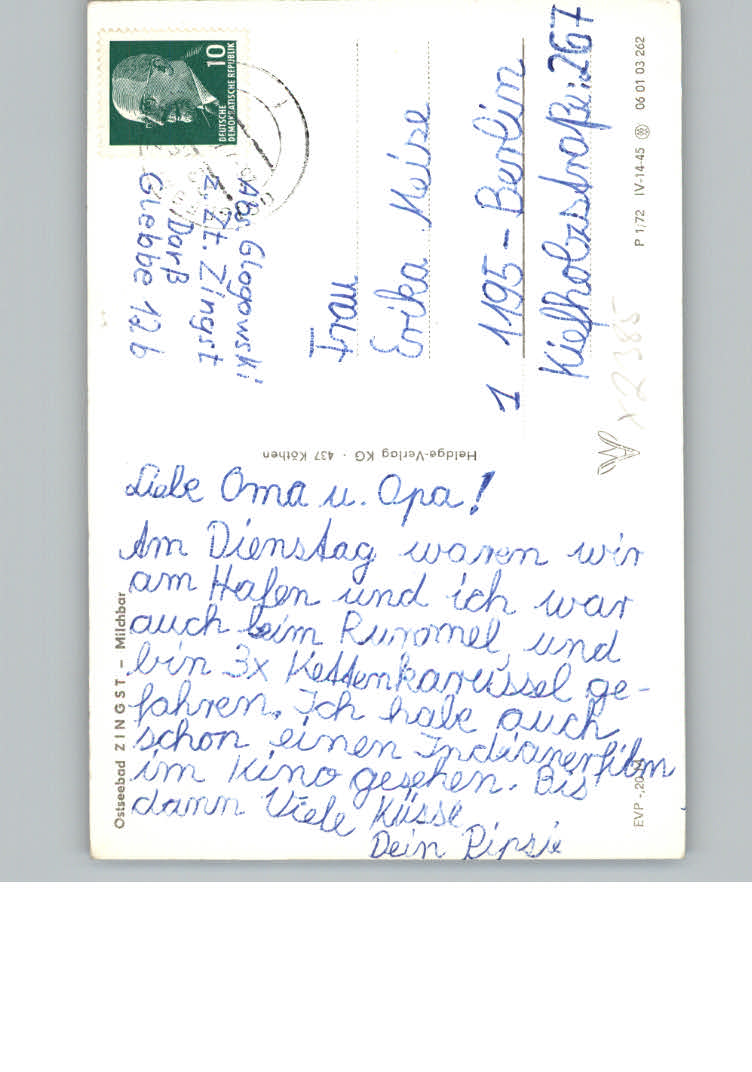 Liebe Oma u. Opa!
Am Dienstag waren wir
am Hafen und ich war
auch beim Rummel, und
bin 3x Kettenkarussel ge-
fahren. Ich habe auch
schon einen Indianerfilm
im Kino gesehen. Bis
dann Viele Küsse
Dein Ripsie
Ostseebad ZINGST – Milchbar
Heldge-Verlag KG · 437 Köthen
10
DEUTSCHE
DEMOKRATISCHE REPUBLIK
Abs. Glogowski
z. Zt. Zingst
Darß
Glebbe 12b
Frau
Erika Meise
1 1195 – Berlin
Kiefholzstraße: 267
x2385
P 1/72 IV-14-45 06 01 03 262
EVP -,20